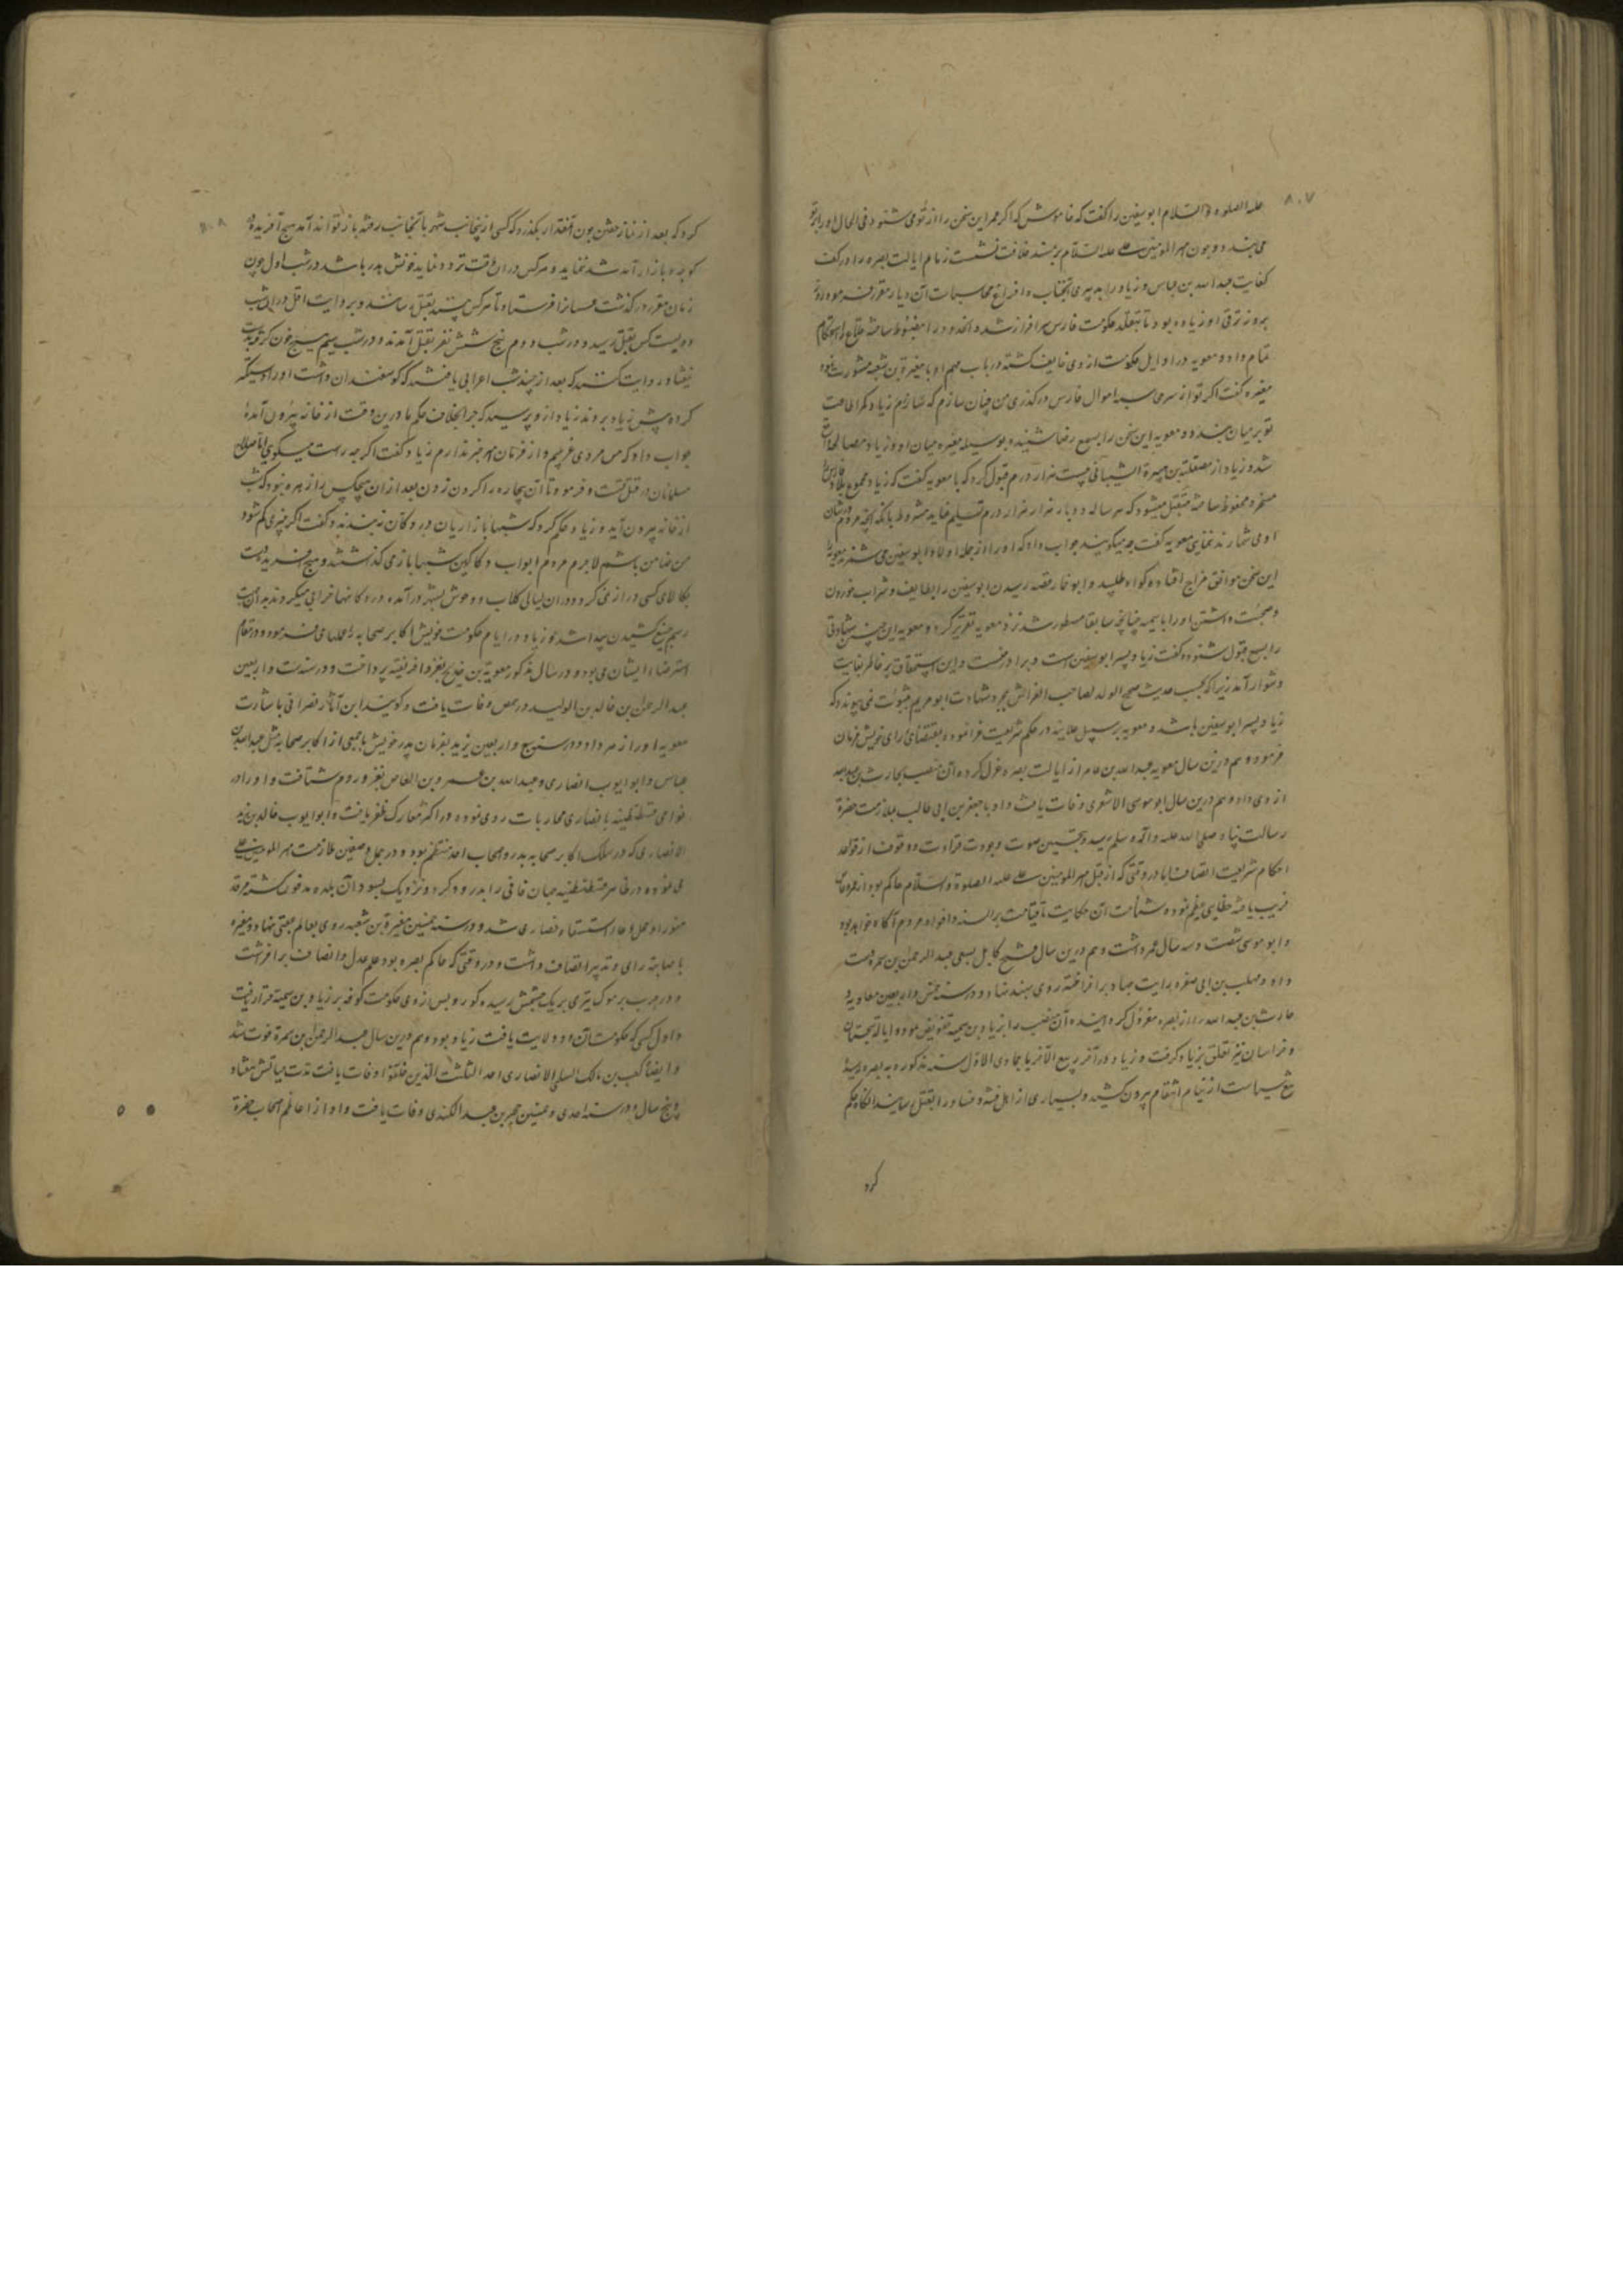 ۸۰۷
علیه الصلوه و السّلام ابو سفین را کفت که خاموش که اکر عمر این سخن را از تو می شنود فی الحال
می بیند و چون امیر المومنین علی علیه السّلام بر مسند خلافت نشست زمام ایالت بصره را در کف
کفایت عبد الله بن عباس و زیاد را بدبیری و افراغ محاسبات آن دیار مقرر فرموده روز
بروز ترقی او زیاده بود تا بتقلد حکومت فارس سرافراز شد و انحدود را مضبوط ساخته قلاع را استحکام
تمام داد و معویه در اوایل حکومت از وی خایف کشته در باب مهم او با مغیرة بن شعبه مشورت نمود
مغیره کفت اکر تو از سر محاسبه اموال فارس در کذری من چنان سازم که زیاد کمر اطاعت
تو بر میان بندد و معویه این سخن را بسمع رضا شنیده بوسیله مغیره میان او و زیاد مصالحه واقع
شد و زیاد از مصقلة بن هبیرة الشیبانی بیست هزار درم قبول کرد که با معویه کفت که زیاد مجموع
مسخر و مضبوط ساخته متقبل میشود که هر ساله دو بار هزار هزار درم تسلیم نماید مشروط بانکه انچه مردم
او می شمارند نمایی معویه کفت چه میکویند جواب داد که او را از جمله اولاد ابو سفین می شمرند معویه را
این سخن موافق مزاج افتاده کواه طلبید و ابو خمار قصه رسیدن ابو سفین را بطایف و شراب خوردن
و صحبت داشتن او را با سمیه چنانچه سابقا مسطور شد نزد معویه تقریر کرد و معویه این چنین شهادتی
را بسمع قبول شنوده کفت زیاد پسر ابو سفین است و برادر منست و این استلحاق بر خاطر بغایت
دشوار آمد زیرا که بحسب حدیث صحیح الولد لصاحب الفراش بمجرد شهادت ابو مریم بثبوت نمی پیوندد که
زیاد پسر ابو سفین باشد و معویه بر سبیل علانیه در حکم شریعت خلاف نموده بمقتضای رای خویش فرمان
فرمود و هم درین سال معویه عبد الله بن عامر از ایالت بصره عزل کرده آن منصب بحارث بن عبد الله
از دی داد و هم درین سال ابو موسی الاشعری وفات یافت و او با جعفر بن ابی طالب بملازمت حضرة
رسالت پناه صلی الله علیه و آله و سلم رسید و بتحسین صوت و جودت قراءت و وقوف از قواعد
احکام شریعت اتصاف داشت اما در وقتی که از قبل امیر المومنین علی علیه الصلوة و السّلام حاکم بود از عمرو عاص
فریب یافته خطایی عظیم نموده شامت آن حکایت تا قیامت بر السنه و افواه مردم آکاه خواهد بود
و ابو موسی شصت و سه سال عمر داشت و هم درین سال فتح کابل بسعی عبد الرحمن بن سمره دست
داد و مهلب بن ابی صفره برایت جهاد بر افراخته روی بهند نهاد و در سنه خمس و اربعین معاویه
حارث بن عبد الله را از بصره معزول کردانیده آن منصب را بزیاد بن سمیه تفویض نموده ایالت سجستان
و خراسان نیز تعلق بزیاد کرفت و زیاد در آخر ربیع الآخر یا جمادی الاوّل سنه مذکوره به بصره رسیده
تیغ سیاست از نیام انتقام بیرون کشید و بسیاری از اهل فتنه و فساد را بقتل رسانید انکاه حکم
کرد
۸۰۸
کرد که بعد از نماز خفتن چون آنمقدار بکذرد که کسی ازینجانب شهر بانجانب رفته باز تواند آمد هیچ آفریده
کوچه و بازار آمد شد ننماید و هر کس در ان وقت تردد نماید خونش هدر باشد در شب اول چون
زمان مقرر در کذشت عسسانرا فرستاد تا هر کس بینند بقتل رسانند و بر وایت اقل در ان شب
دویست کس بقتل رسید و در شب دوم پنج شش نفر بقتل آمدند و در شب سیم هیچ خون
نیفتاد روایت کنند که بعد از چند شب اعرابی یافتند که کوسفندان داشت او را دستکیر
کرده پیش زیاد بردند زیاد از و پرسید که چرا بخلاف حکم ما درین وقت از خانه بیرون آمدۀ
جواب داد که من مردی غریبم و از فرمان امیر خبر ندارم زیاد کفت اکر چه راست میکویی اما صلاح
مسلمانان در قتل تست و فرمود تا آن بیچاره را کردن زدن بعد از ان هیچکس را زهره نبود که شب
از خانه بیرون آید و زیاد حکم کرد که شبها بازاریان در دکان نبندند و کفت اکر چیزی کم شود
من ضامن باشم لاجرم مردم ابواب دکاکین شبها باز می کذاشتند و هیچ آفریده دست
بکالای کسی دراز نمی کرد و در ان لیالی کلاب و وحوش بشهر در آمده در دکانها خرابی میکردند
رسم پیدا شد و زیاد در ایام حکومت خویش اکابر صحابه را عملها می فرمود و در مقام
استرضاء ایشان می بود و در سال مذکور معویة بن خدیج بغزو افریقیه پرداخت و در سنه ست و اربعین
عبد الرحمن بن خالد بن الولید در حمص وفات یافت و کویند ابن آثال نصرانی باشارت
معویه او را زهر داد و در سنه تسع و اربعین یزید بفرمان پدر خویش با جمعی از اکابر صحابه مثل عبد الله بن
عباس و ابو ایوب انصاری و عبد الله بن عمرو بن العاص بغزو روم شتافت و او را در
نواحی قسطنطنیه با نصاری محاربات روی نموده در اکثر معارک ظفر یافت و ابو ایوب خالد بن زید
الانصاری که در سلک اکابر صحابه بدر و اصحاب احد منتظم بود و در جمل و صفین ملازمت امیر المومنین علی
می نموده در ظاهر قسطنطنیه جهان فانی را بدرود کرد و نزدیک بسور آن بلده مدفون کشته مرقد
منور او محل دعاء استسقاء نصاری شد و در سنه خمسین مغیرة بن شعبه روی بعالم عقبی نهاد و مغیره
باصابت رای و تدبیر اتصاف داشت و در وقتی که حاکم بصره بود علم عدل و انصاف بر افراشت
و در حرب یرموک تیری بر یک چشمش رسیده کور و پس از وی حکومت کوفه بر زیاد بن سمیة قرار یافت
و اول کسی که حکومت آن دو ولایت یافت زیاد بود و هم درین سال عبد الرحمن بن سمرة فوت شد
و ایضا کعب بن مالک السلمی الانصاری احد الثلثت الذین خلّفوا وفات یافت مدت حیاتش هفتاد
و پنج سال و در سنه احدی و خمسین حجر بن عبد الکندی وفات یافت و او از اعاظم اصحاب حضرة